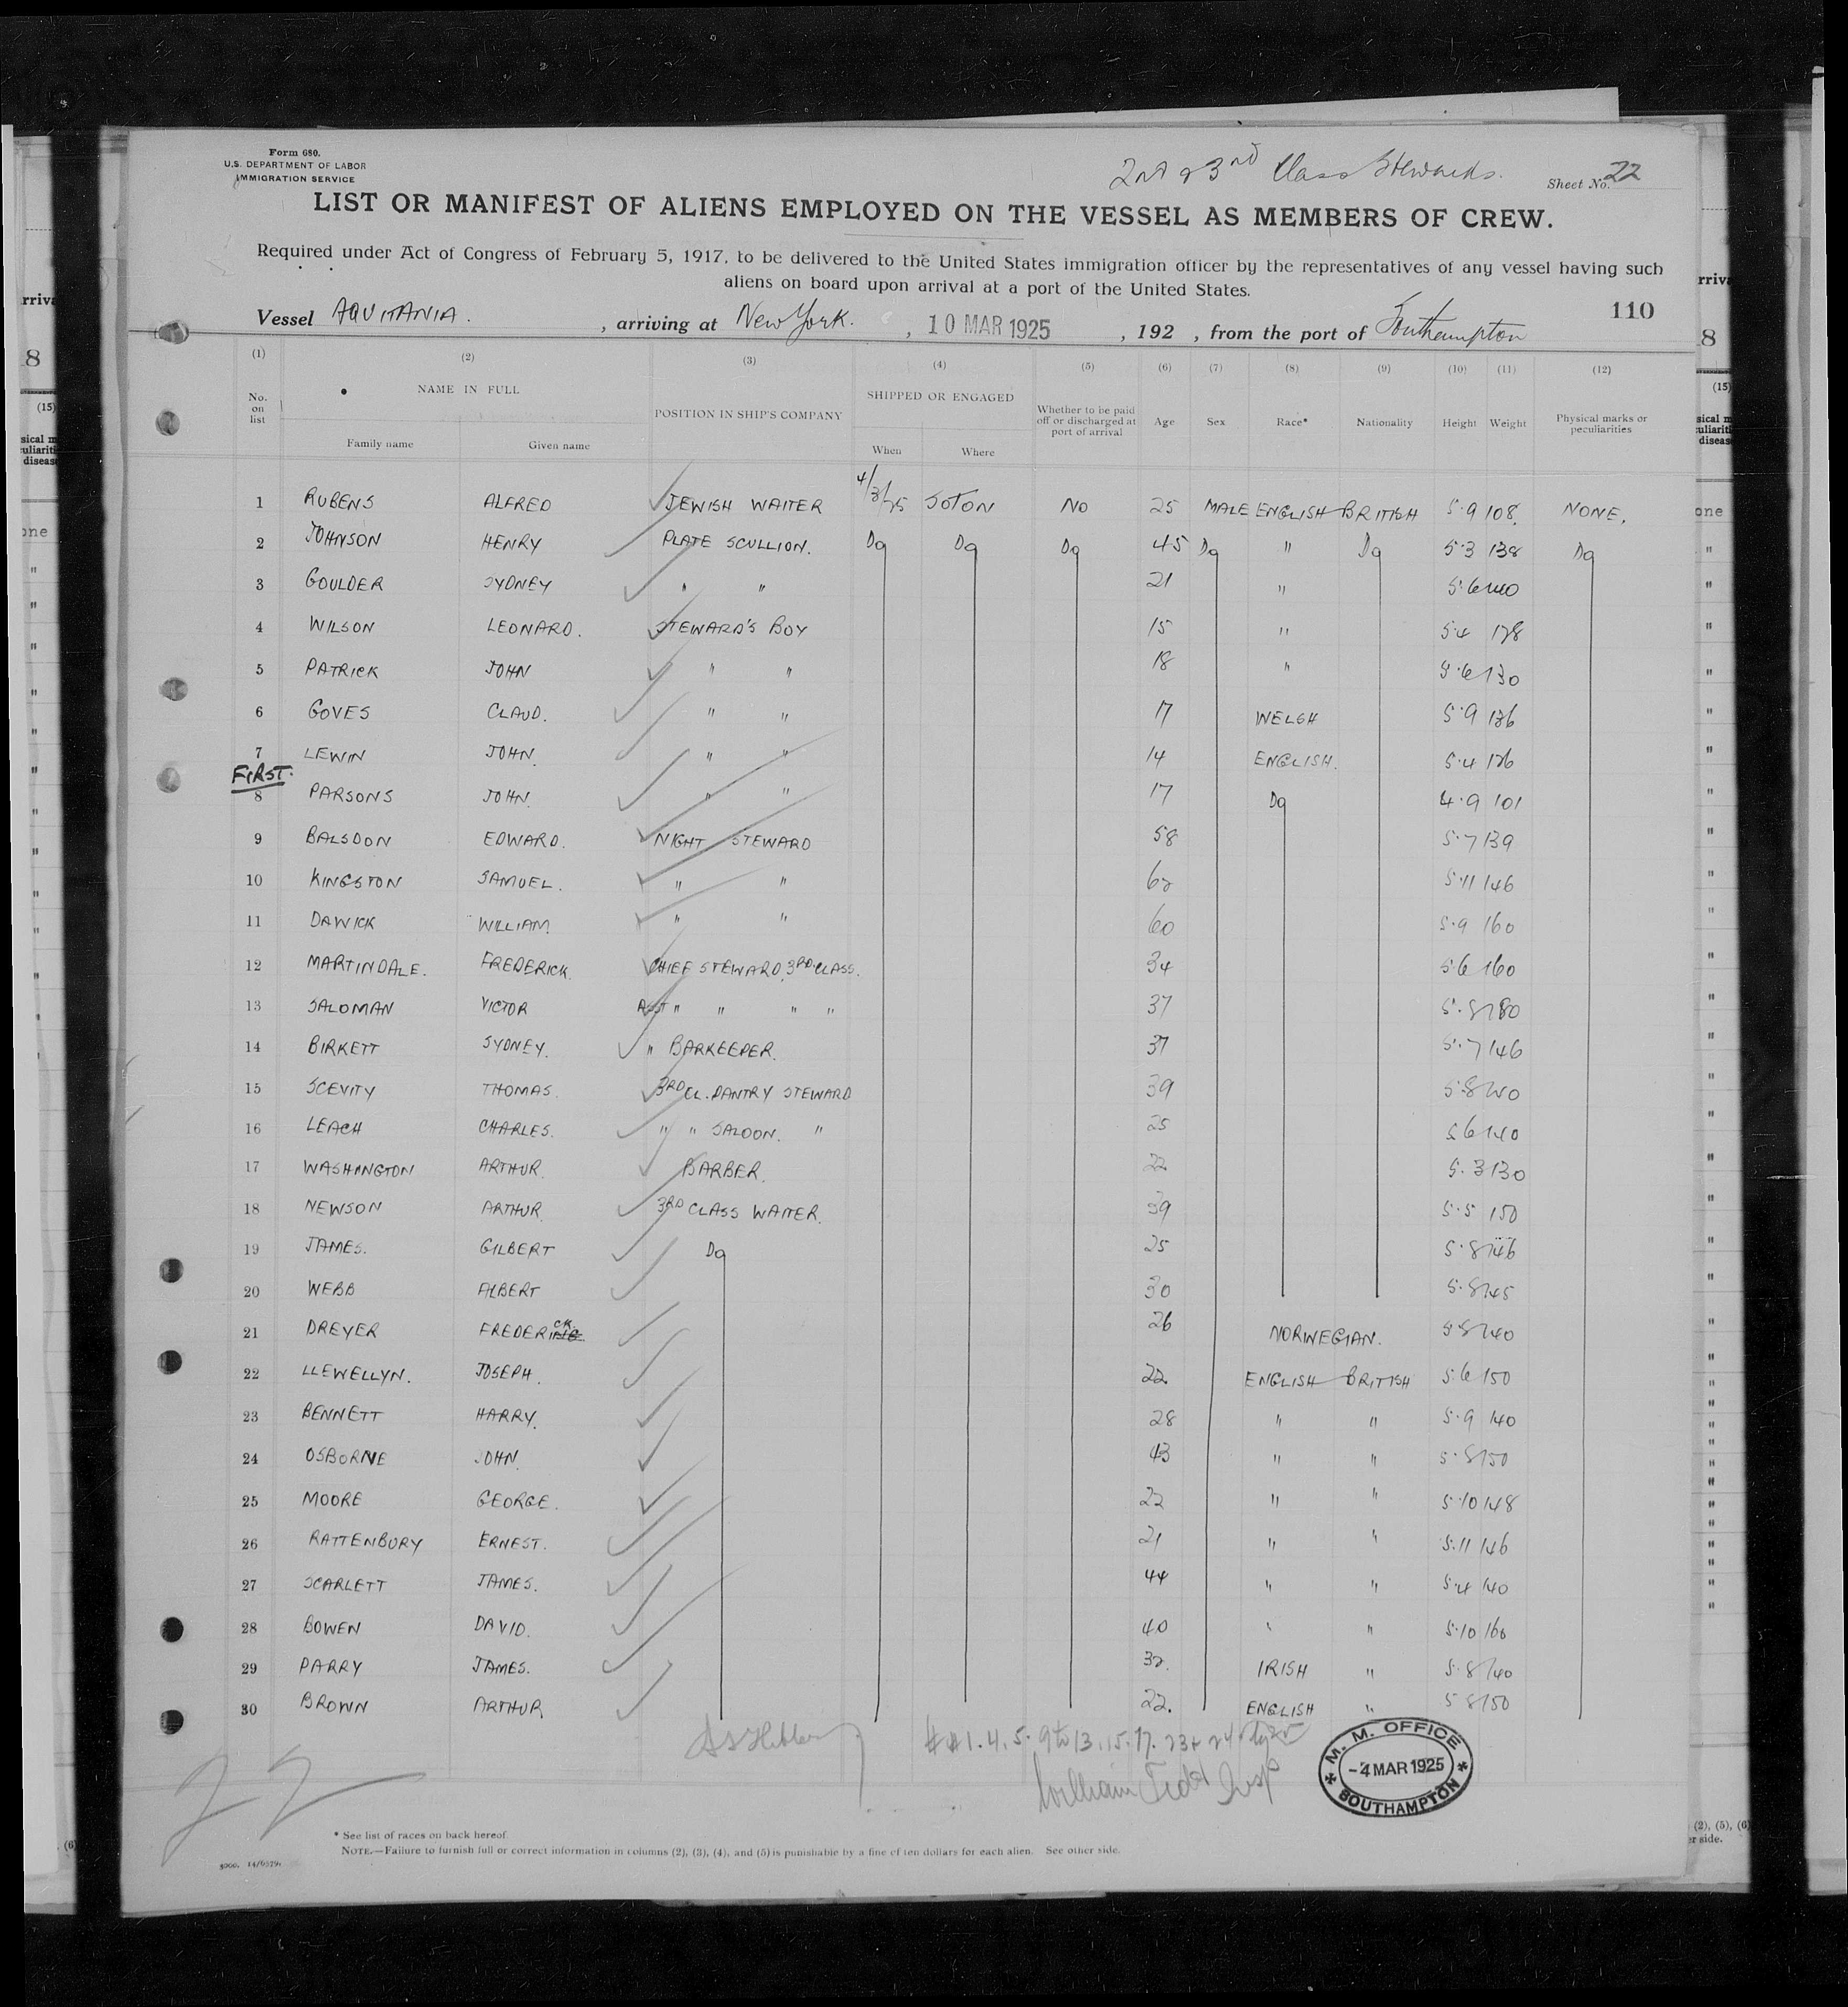 Form 680.
U.S. DEPARTMENT OF LABOR
IMMIGRATION SERVICE
2nd & 3rd Class Stewards.
Sheet No. 22
LIST OR MANIFEST OF ALIENS EMPLOYED ON THE VESSEL AS MEMBERS OF CREW.
Required under Act of Congress of February 5, 1917, to be delivered to the United States immigration officer by the representatives of any vessel having such
aliens on board upon arrival at a port of the United States.
110
Vessel AQUITANIA. , arriving at New York. , 10 MAR 1925 , 192 , from the port of Southampton
(1) (2) (3) (4) (5) (6) (7) (8) (9) (10) (11) (12)
No. on list NAME IN FULL Family name Given name POSITION IN SHIP'S COMPANY SHIPPED OR ENGAGED When Where Whether to be paid off or discharged at port of arrival Age Sex Race* Nationality Height Weight Physical marks or peculiarities
1 RUBENS ALFRED JEWISH WAITER 4/3/25 SOTON NO 25 MALE ENGLISH BRITISH 5.9 108. NONE.
2 JOHNSON HENRY PLATE SCULLION. Do Do Do 45 Do " Do 5.3 138 Do
3 GOULDER SYDNEY " " 21 " 5.6 140
4 WILSON LEONARD. STEWARD'S BOY 15 " 5.4 128
5 PATRICK JOHN " " 18 " 5.6 130
6 GOVES CLAUD. " " 17 WELSH 5.9 136
7 LEWIN JOHN. " " 14 ENGLISH. 5.4 126
FIRST.
8 PARSONS JOHN. " " 17 Do 4.9 101
9 BALSDON EDWARD. NIGHT STEWARD 58 5.7 139
10 KINGSTON SAMUEL. " " 62 5.11 146
11 DAWICK WILLIAM. " " 60 5.9 160
12 MARTINDALE. FREDERICK. CHIEF STEWARD, 3RD CLASS. 34 5.6 160
13 SALOMAN VICTOR ASST " " " " 37 5.8 180
14 BIRKETT SYDNEY. " BARKEEPER. 37 5.7 146
15 SCEVITY THOMAS. 3RD CL. PANTRY STEWARD 39 5.8 150
16 LEACH CHARLES. " " SALOON. " 25 5.6 140
17 WASHINGTON ARTHUR. BARBER. 22 5.3 130
18 NEWSON ARTHUR. 3RD CLASS WAITER. 39 5.5 150
19 JAMES. GILBERT Do 25 5.8 146
20 WEBB ALBERT 30 5.8 145
21 DREYER FREDERICK. 26 NORWEGIAN. 5.8 140
22 LLEWELLYN. JOSEPH. 22. ENGLISH BRITISH 5.6 150
23 BENNETT HARRY. 28 " " 5.9 140
24 OSBORNE JOHN. 43 " " 5.8 150
25 MOORE GEORGE. 22 " " 5.10 148
26 RATTENBURY ERNEST. 21 " " 5.11 146
27 SCARLETT JAMES. 44 " " 5.4 140
28 BOWEN DAVID. 40 " " 5.10 160
29 PARRY JAMES. 32. IRISH " 5.8 140
30 BROWN ARTHUR. 22. ENGLISH " 5.8 150
1. 4. 5. 9 to 13. 15. 17. 23 + 24
William Insp
M. M. OFFICE
-4 MAR 1925
SOUTHAMPTON
22
* See list of races on back hereof.
NOTE.—Failure to furnish full or correct information in columns (2), (3), (4), and (5) is punishable by a fine of ten dollars for each alien. See other side.